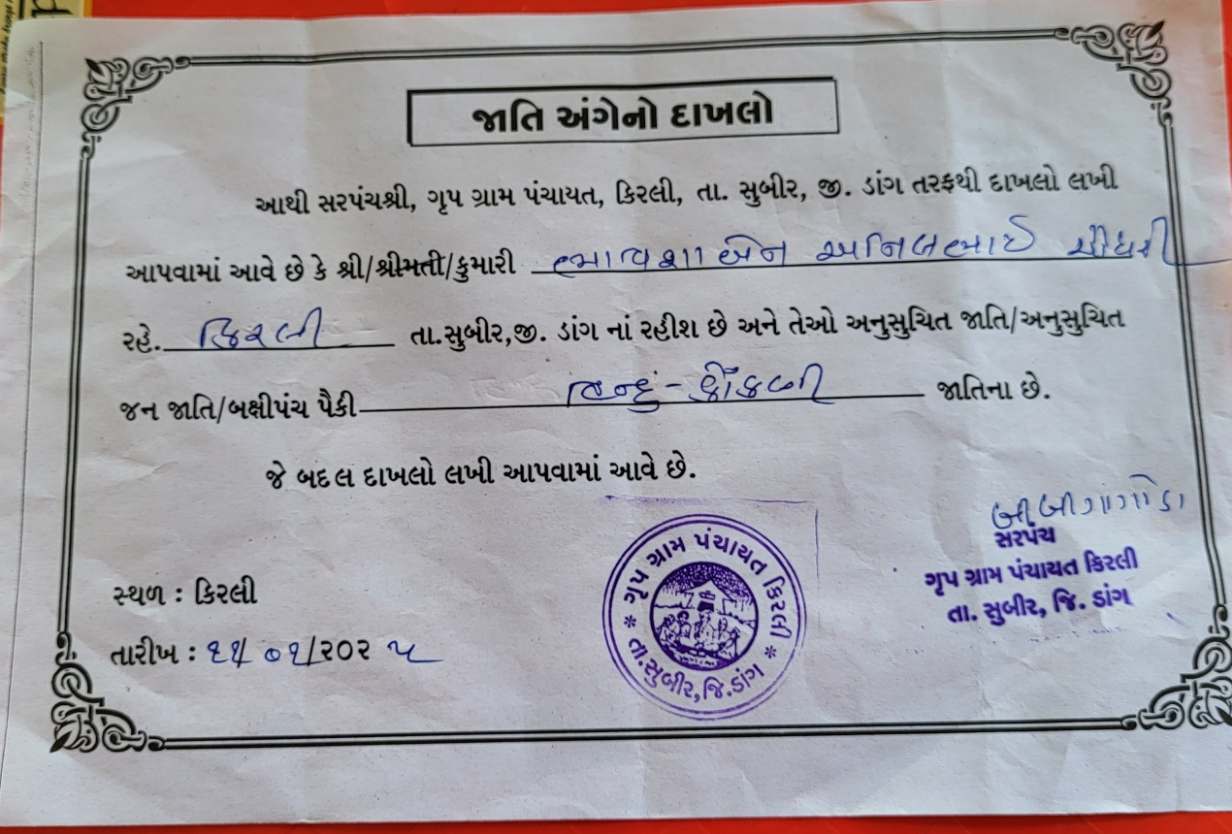 જાતિ અંગેનો દાખલો
આથી સરપંચશ્રી, ગૃપ ગ્રામ પંચાયત, કિરલી, તા. સુબીર, જી. ડાંગ તરફથી દાખલો લખી
આપવામાં આવે છે કે શ્રી/શ્રીમતી/કુમારી અનિલભાઈ ચૌધરી
રહે. કિરલી તા.સુબીર,જી. ડાંગ નાં રહીશ છે અને તેઓ અનુસુચિત જાતિ/અનુસુચિત
જન જાતિ/બક્ષીપંચ પૈકી હિન્દુ - કોંકણી જાતિના છે.
જે બદલ દાખલો લખી આપવામાં આવે છે.
સરપંચ
ગૃપ ગ્રામ પંચાયત કિરલી
તા. સુબીર, જિ. ડાંગ
સ્થળ : કિરલી
તારીખ : ૨૧/૦૧/૨૦૨૫
* ગૃપ ગ્રામ પંચાયત કિરલી *
તા.સુબીર,જિ.ડાંગ